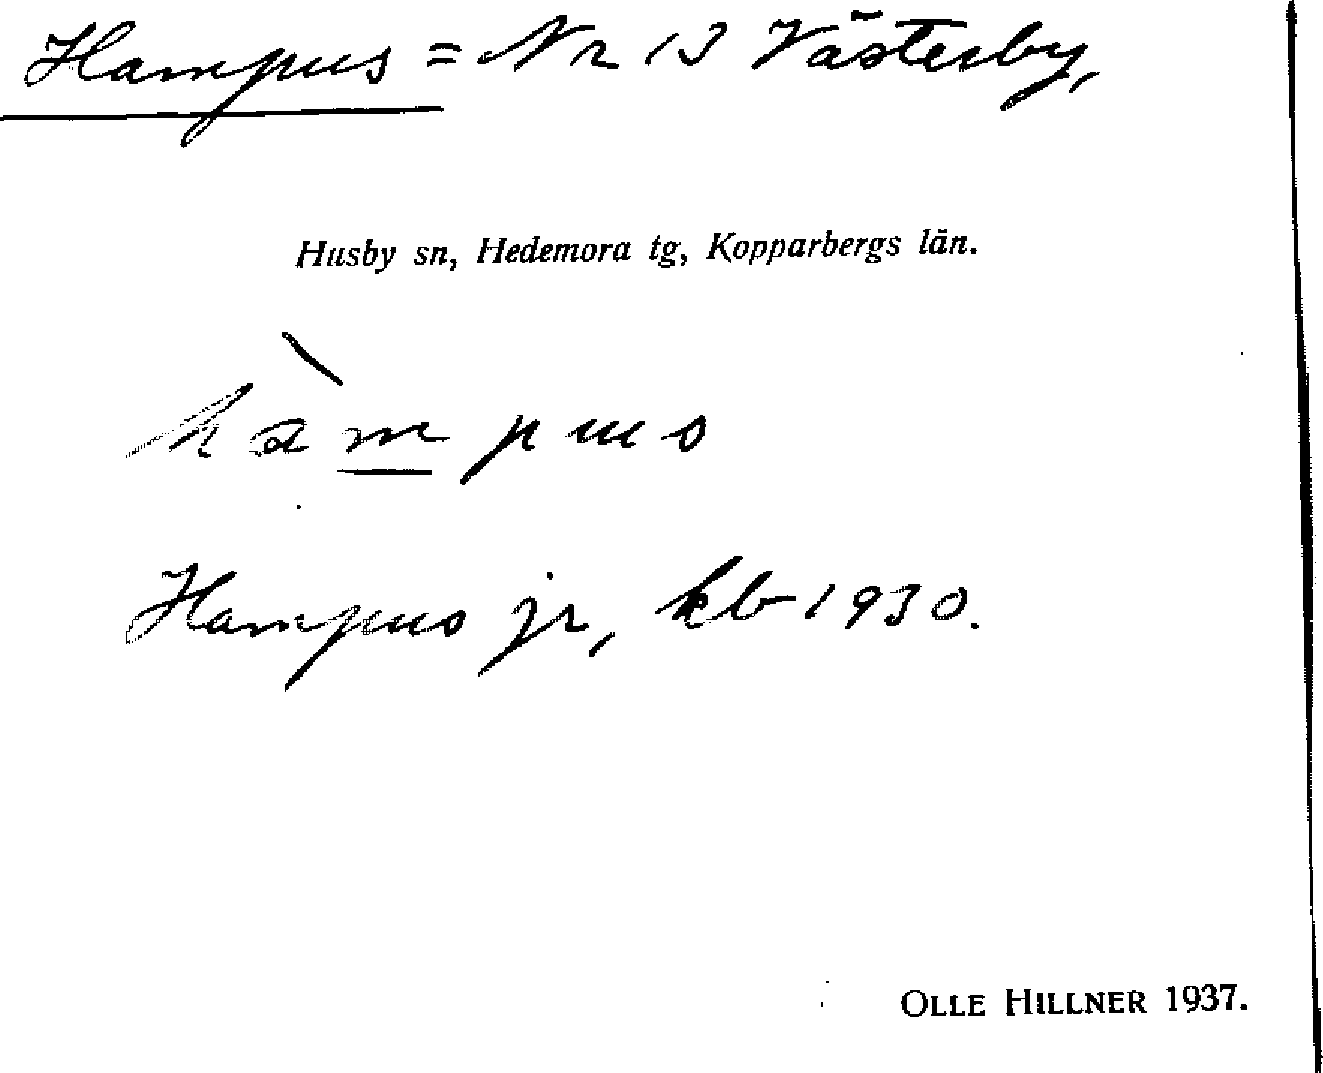 Hampus = Nr 13 Västerby,
Husby sn, Hedemora tg, Kopparbergs län.
hàmpus
Hampus jr, kb 1930.
OLLE HILLNER 1937.